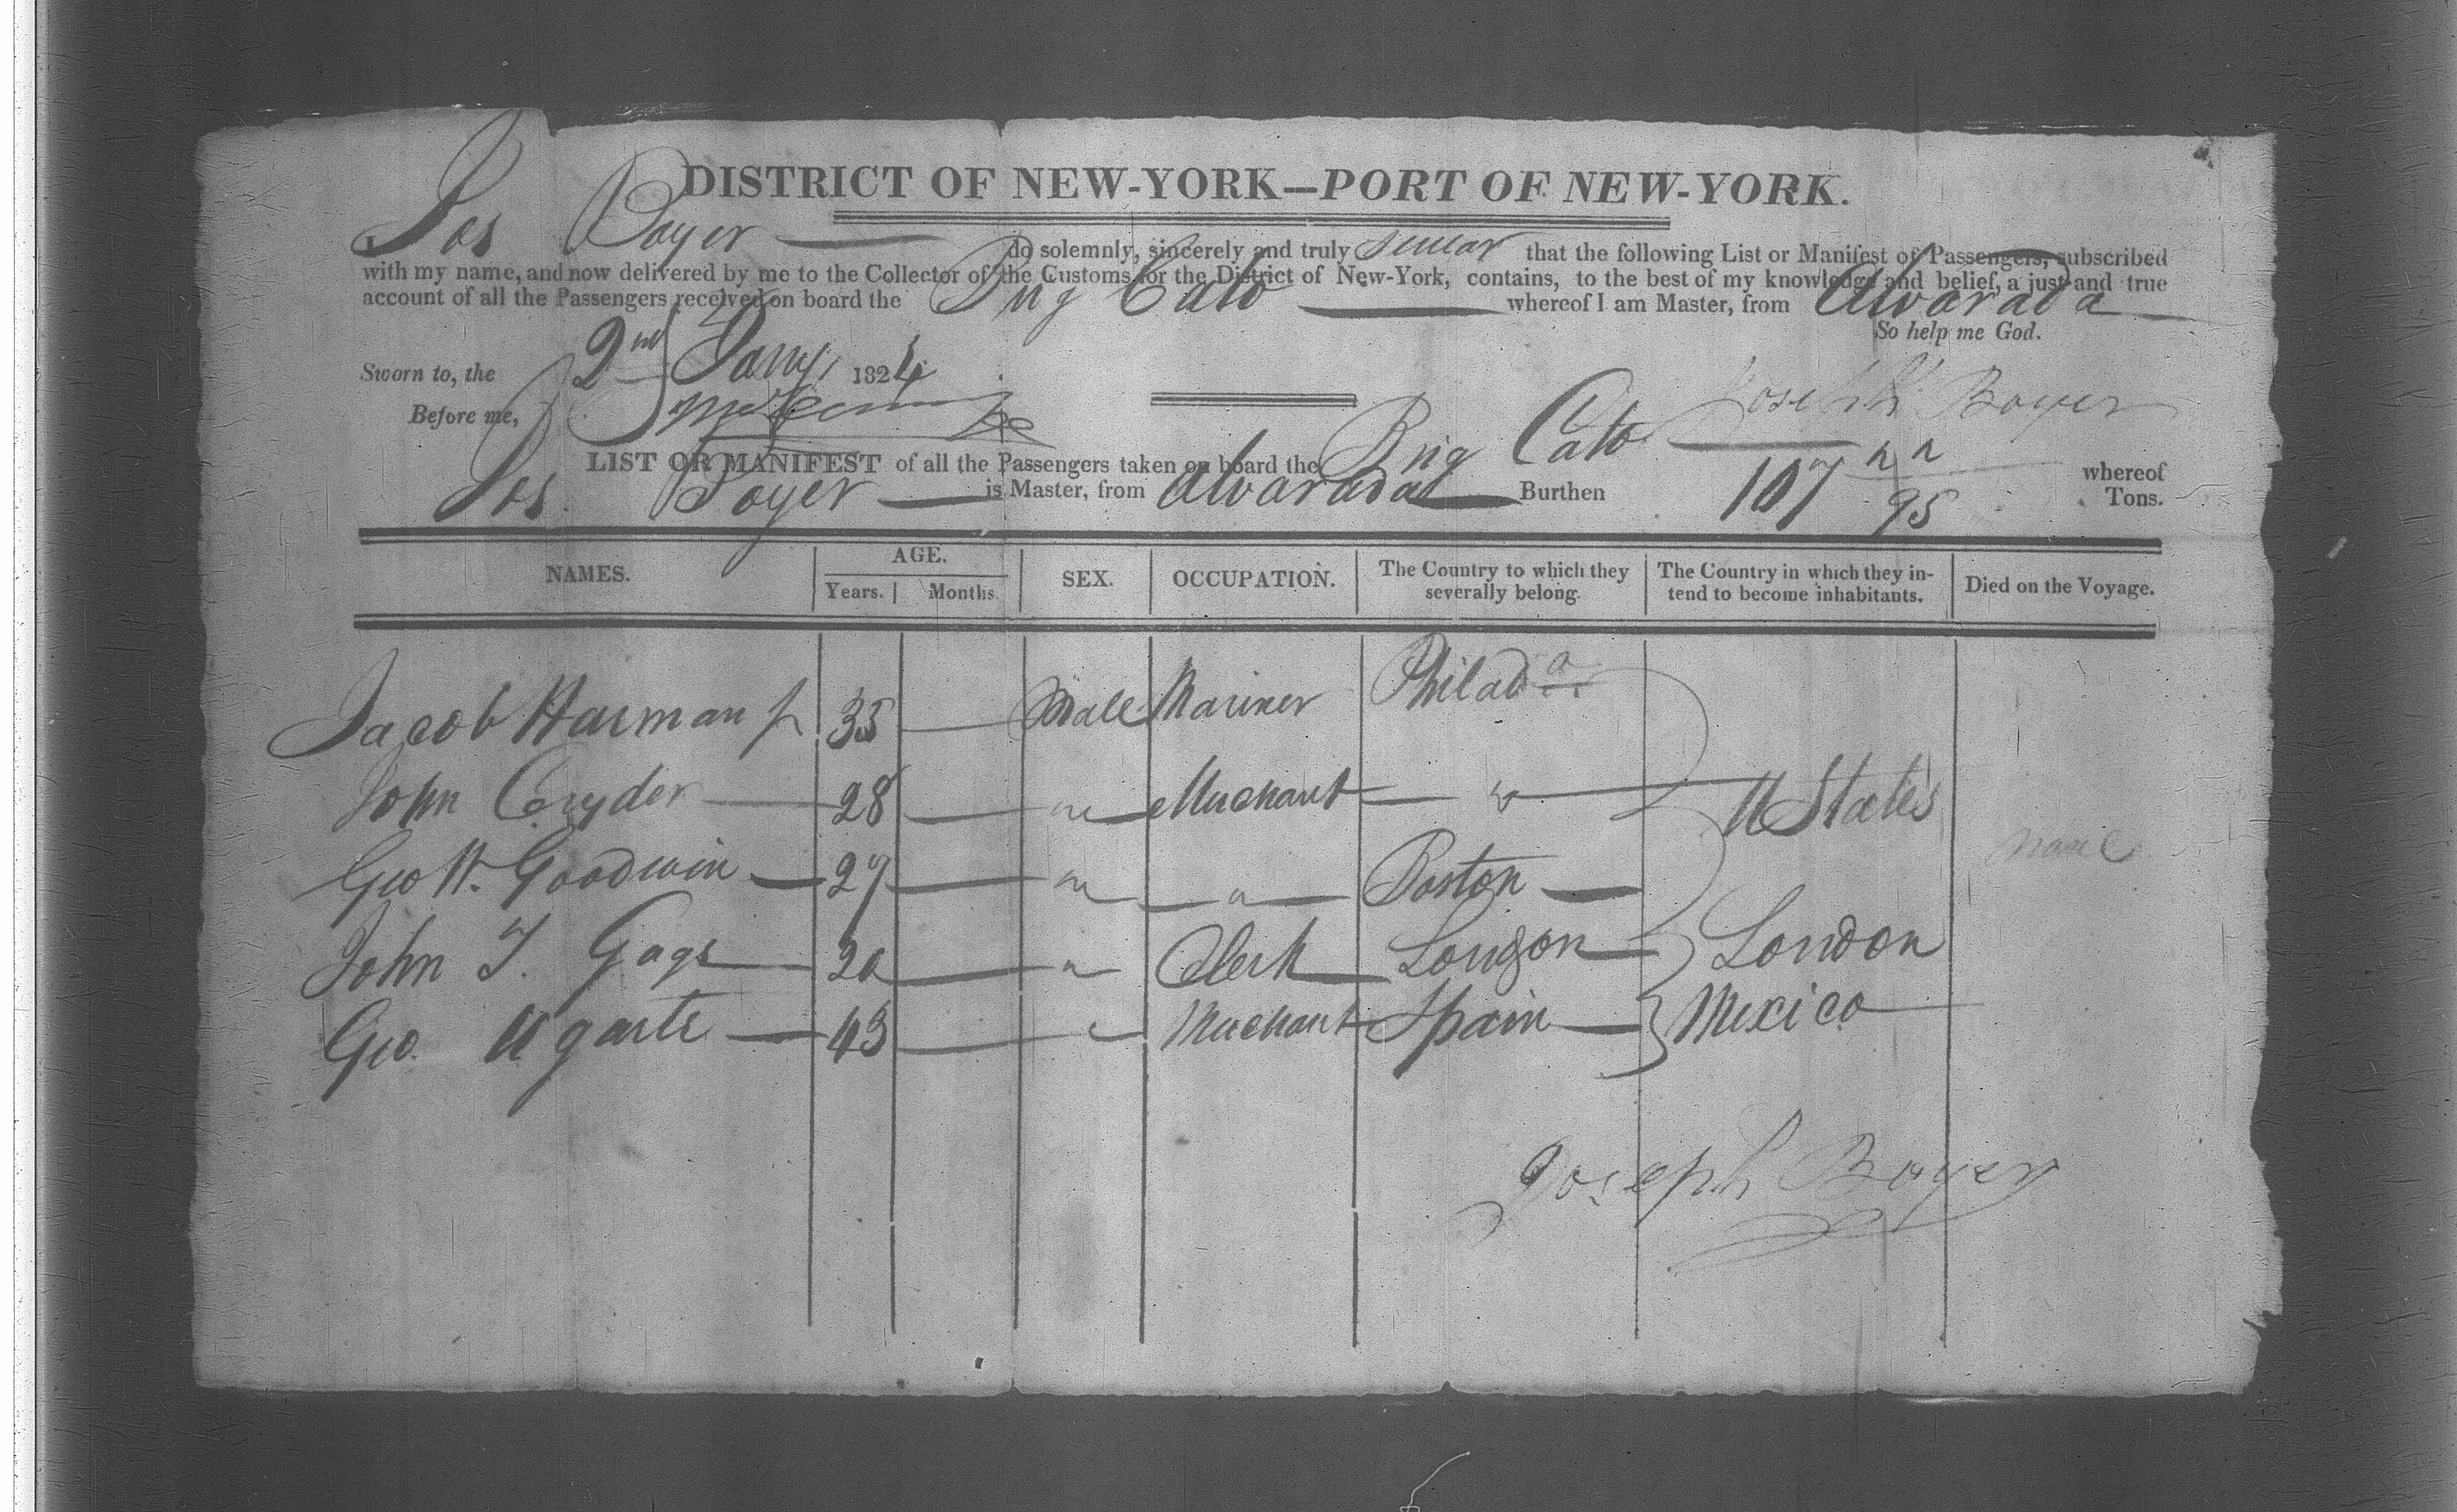 DISTRICT OF NEW-YORK—PORT OF NEW-YORK.
I Jos Boyer do solemnly, sincerely and truly swear that the following List or Manifest of Passengers, subscribed
with my name, and now delivered by me to the Collector of the Customs for the District of New-York, contains, to the best of my knowledge and belief, a just and true
account of all the Passengers received on board the Brig Cato whereof I am Master, from Alvarada
So help me God.
Sworn to, the 2nd Jany 1824
Before me,
Joseph Boyer
LIST OR MANIFEST of all the Passengers taken on board the Brig Cato whereof
Jos Boyer is Master, from Alvarada Burthen 107 /95 Tons.
NAMES. AGE. Years. Months. SEX. OCCUPATION. The Country to which they severally belong. The Country in which they intend to become inhabitants. Died on the Voyage.
Jacob Harman Jr 35 Male Mariner Philada
John Cryder 28 " Merchant " U States
Geo W. Goodwin 27 " " Boston none
John T. Gags 20 " Clerk London London
Geo. Ugarte 43 " Merchant Spain Mexico
Joseph Boyer